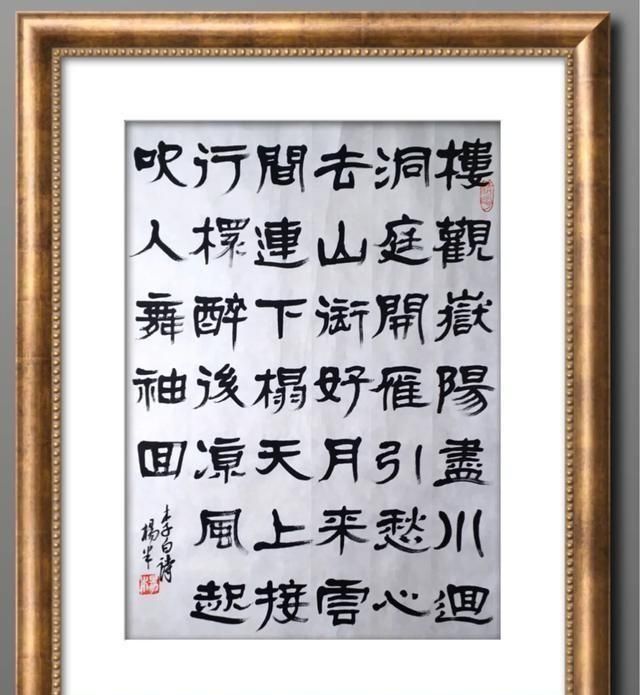 樓觀嶽陽盡川迴
洞庭開雁引愁心
去山銜好月来雲
間連下榻天上接
行醉後凉風起
吹人舞袖回
李白诗
楊半